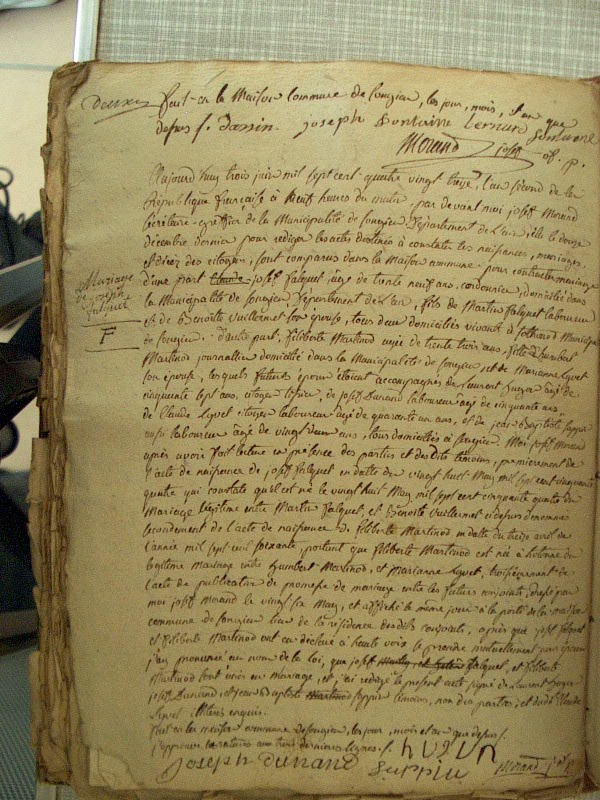 fait en la Maison Commune de Songieu, les jour, mois, & an que
depuis f. Joseph fontaine bernard fontaine
Morand
Aujourd'huy trois juin mil sept cent quatre vingt treize, l'an second de la
République française à Neuf heures du matin, par devant moi joseph Morand
secrétaire-greffier de la Municipalité de Songieu, Département de l'ain, élu le douze
décembre dernier pour rediger les actes destinés à constater les naissances, mariages
et décès des citoyens, sont comparus dans la Maison commune pour contracter mariage
Mariage de joseph falquet
F
d'une part Claude joseph falquet, agé de trente neuf ans, cordonnier, domicilié dans
la Municipalité de Songieu, Département de l'ain, fils de Martin falquet laboureur
et de Benoitte Vuillermet son épouse, tous deux domiciliés vivants à Municip.
de Songieu. d'autre part, filiberte Martinod agée de trente trois ans, fille d'humbert
Martinod journallier domicilié dans la Municipalité de Songieu, et de Marianne Lyvet
son épouse, lesquels futurs époux étoient accompagnés de Laurent huger agé de
cinquante sept ans, citoyen tissier, de joseph Dunand laboureur agé de cinquante ans
de Claude Lyvet citoyen laboureur agé de quarante un ans, et de jean Baptiste seppiu
aussi laboureur agé de vingt deux ans, tous domiciliés à Songieu. Moi joseph Morand
après avoir fait lecture en présence des parties et desdits témoins, premierement de
l'acte de naissance de joseph falquet en datte du vingt huit May mil sept cent cinquante
quatre qui constate qu'il est né le vingt huit May mil sept cent cinquante quatre du
Mariage légitime entre Martin falquet, et Benoite Vuillermet ci dessus dénommés
secondement de l'acte de naissance de filiberte Martinod en datte du treize avril de
l'année mil sept cent soixante, portant que filiberte Martinod est née à du
légitime mariage entre humbert Martinod, et Marianne Lyvet, troisiemement de
l'acte de publication de promesse de mariage entre les futurs conjoints, dressé par
moi joseph Morand le vingt six May, et affiché le même jour à la porte de la maison
commune de Songieu lieu de la résidence desdits conjoints, après que joseph falquet
et filiberte Martinod ont eu déclaré à haute voix se prendre mutuellement pour époux
j'ay prononcé au nom de la loi, que joseph falquet, et filiberte
Martinod sont unis en mariage, et j'ai redigé le present acte signé de Laurent huger
joseph Dunand, et jean Baptiste Martinod seppiu témoins, non des parties, et dudit Claude
Lyvet illiterés enquis.
fait en la maison commune de songieu, les jour, mois et an que dessus f.
j'approuve les ratures aux trois dernieres lignes. f.
joseph dunand seppiu Morand